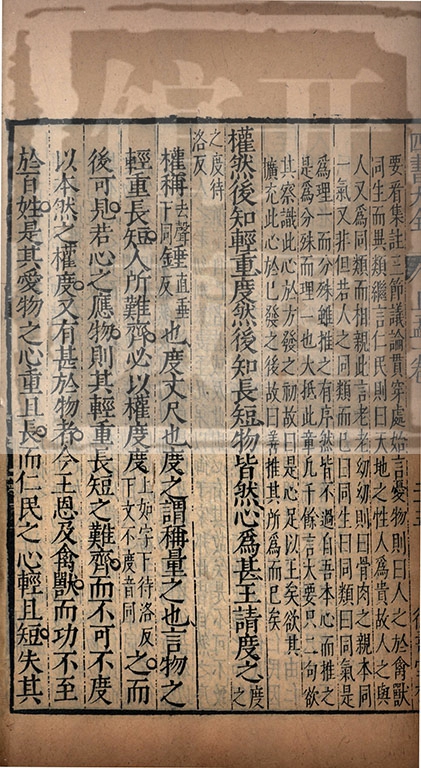 要看集註三節議論貫穿處始言愛物則曰人之於禽獸
同生而異類繼言仁民則曰天地之性人爲貴故人之與
人又爲同類而相親此言老老幼幼則曰骨肉之親本同
一氣又非但若人之同類而已曰同生曰同類曰同氣是
爲理一而分殊雖推之有序然皆不過自吾本心而推之
是爲分殊而理一也大抵此章凡千餘言大要只二句欲
其察識此心於方發之初故曰是心足以王矣欲其
擴充此心於已發之後故曰善推其所爲而已矣
權然後知輕重度然後知長短物皆然心爲甚王請度之度
之度待
洛反
權稱去聲下同錘直垂反也度丈尺也度之謂稱量之也言物之
輕重長短人所難齊必以權度度上如字下待洛反下文不度音同之而
後可見若心之應物則其輕重長短之難齊而不可不度
以本然之權度又有甚於物者今王恩及禽獸而功不至
於百姓是其愛物之心重且長而仁民之心輕且短失其